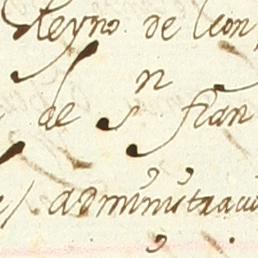 Reyno de leon
de s.n fran
administraci